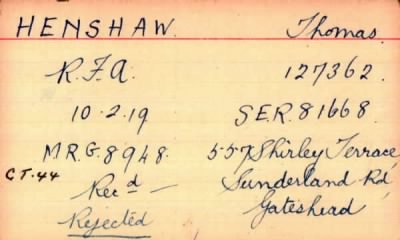 HENSHAW. Thomas.
R.F.A. 127362.
10.2.19 S.E.R. 81668
M.R.G. 8948. 557 Shirley Terrace,
CT.44 Rec d — Sunderland Rd,
Rejected Gateshead